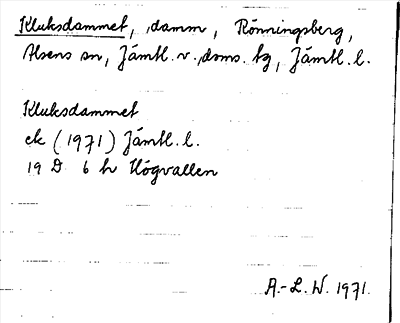 Kluksdammet, damm, Rönningsberg,
Alsens sn, Jämtl. v. doms. tg, Jämtl. l.
Kluksdammet
ek (1971) Jämtl. l.
19 D 6 h Högvallen
A.-L. W. 1971.